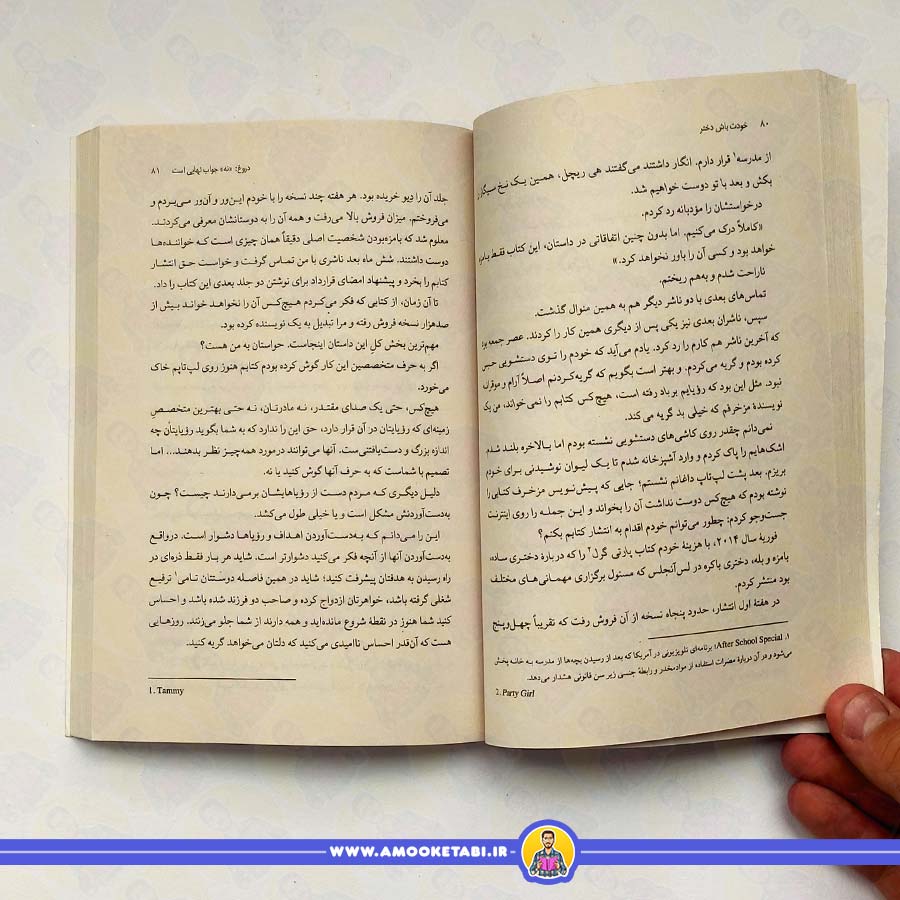 ۸۰ خودت باش دختر
از مدرسه۱ قرار دارم. انگار داشتند می‌گفتند هی ریچل، همین یک نخ سیگار
بکش و بعد با تو دوست خواهیم شد.
درخواستشان را مؤدبانه رد کردم.
«کاملاً درک می‌کنیم. اما بدون چنین اتفاقاتی در داستان، این کتاب فقط بامزه
خواهد بود و کسی آن را باور نخواهد کرد.»
ناراحت شدم و به‌هم ریختم.
تماس‌های بعدی با دو ناشر دیگر هم به همین منوال گذشت.
سپس، ناشران بعدی نیز یکی پس از دیگری همین کار را کردند. عصر جمعه بود
که آخرین ناشر هم کارم را رد کرد. یادم می‌آید که خودم را توی دستشویی حبس
کرده بودم و گریه می‌کردم. و بهتر است بگویم که گریه‌کردنم اصلاً آرام و موقرانه
نبود. مثل این بود که رؤیایم بر باد رفته است، هیچ‌کس کتابم را نمی‌خواند، من یک
نویسندهٔ مزخرفم که خیلی بد گریه می‌کند.
نمی‌دانم چقدر روی کاشی‌های دستشویی نشسته بودم اما بالاخره بلند شدم،
اشک‌هایم را پاک کردم و وارد آشپزخانه شدم تا یک لیوان نوشیدنی برای خودم
بریزم. بعد پشت لپ‌تاپ داغانم نشستم؛ جایی که پیش‌نویس مزخرف کتابی را
نوشته بودم که هیچ‌کس دوست نداشت آن را بخواند و این جمله را روی اینترنت
جست‌وجو کردم: چطور می‌توانم خودم اقدام به انتشار کتابم بکنم؟
فوریهٔ سال ۲۰۱۴، با هزینهٔ خودم کتاب پارتی گرل۲ را که دربارهٔ دختری ساده،
بامزه و بله، دختری باکره در لس‌آنجلس که مسئول برگزاری مهمانی‌های مختلف
بود منتشر کردم.
در هفتهٔ اول انتشار، حدود پنجاه نسخه از آن فروش رفت که تقریباً چهل‌وپنج
۱. After School Special؛ برنامه‌ای تلویزیونی در آمریکا که بعد از رسیدن بچه‌ها از مدرسه به خانه پخش
می‌شود و در آن دربارهٔ مضرات استفاده از موادمخدر و رابطهٔ جنسی زیر سن قانونی هشدار می‌دهد.
2. Party Girl
دروغ: «نه» جواب نهایی است ۸۱
جلد آن را دیو خریده بود. هر هفته چند نسخه را با خودم این‌ور و آن‌ور می‌بردم و
می‌فروختم. میزان فروش بالا می‌رفت و همه آن را به دوستانشان معرفی می‌کردند.
معلوم شد که بامزه‌بودن شخصیت اصلی دقیقاً همان چیزی است که خواننده‌ها
دوست داشتند. شش ماه بعد ناشری با من تماس گرفت و خواست حق انتشار
کتابم را بخرد و پیشنهاد امضای قرارداد برای نوشتن دو جلد بعدی این کتاب را داد.
تا آن زمان، از کتابی که فکر می‌کردم هیچ‌کس آن را نخواهد خواند بیش از
صدهزار نسخه فروش رفته و مرا تبدیل به یک نویسنده کرده بود.
مهم‌ترین بخش کل این داستان اینجاست. حواستان به من هست؟
اگر به حرف متخصصین این کار گوش کرده بودم کتابم هنوز روی لپ‌تاپم خاک
می‌خورد.
هیچ‌کس، حتی یک صدای مقتدر، نه مادرتان، نه حتی بهترین متخصص
زمینه‌ای که رؤیایتان در آن قرار دارد، حق این را ندارد که به شما بگوید رؤیایتان چه
اندازه بزرگ و دست‌یافتنی‌ست. آنها می‌توانند درمورد همه‌چیز نظر بدهند... اما
تصمیم با شماست که به حرف آنها گوش کنید یا نه.
دلیل دیگری که مردم دست از رؤیاهایشان برمی‌دارند چیست؟ چون
به‌دست‌آوردنش مشکل است و یا خیلی طول می‌کشد.
این را می‌دانم که به‌دست‌آوردن اهداف و رؤیاها دشوار است. درواقع
به‌دست‌آوردن آنها از آنچه فکر می‌کنید دشوارتر است. شاید هر بار فقط ذره‌ای در
راه رسیدن به هدفتان پیشرفت کنید؛ شاید در همین فاصله دوستتان تامی۱ ترفیع
شغلی گرفته باشد، خواهرتان ازدواج کرده و صاحب دو فرزند شده باشد و احساس
کنید شما هنوز در نقطهٔ شروع مانده‌اید و همه دارند از شما جلو می‌زنند. روزهایی
هست که آن‌قدر احساس ناامیدی می‌کنید که دلتان می‌خواهد گریه کنید.
1. Tammy
WWW.AMOOKETABI.IR